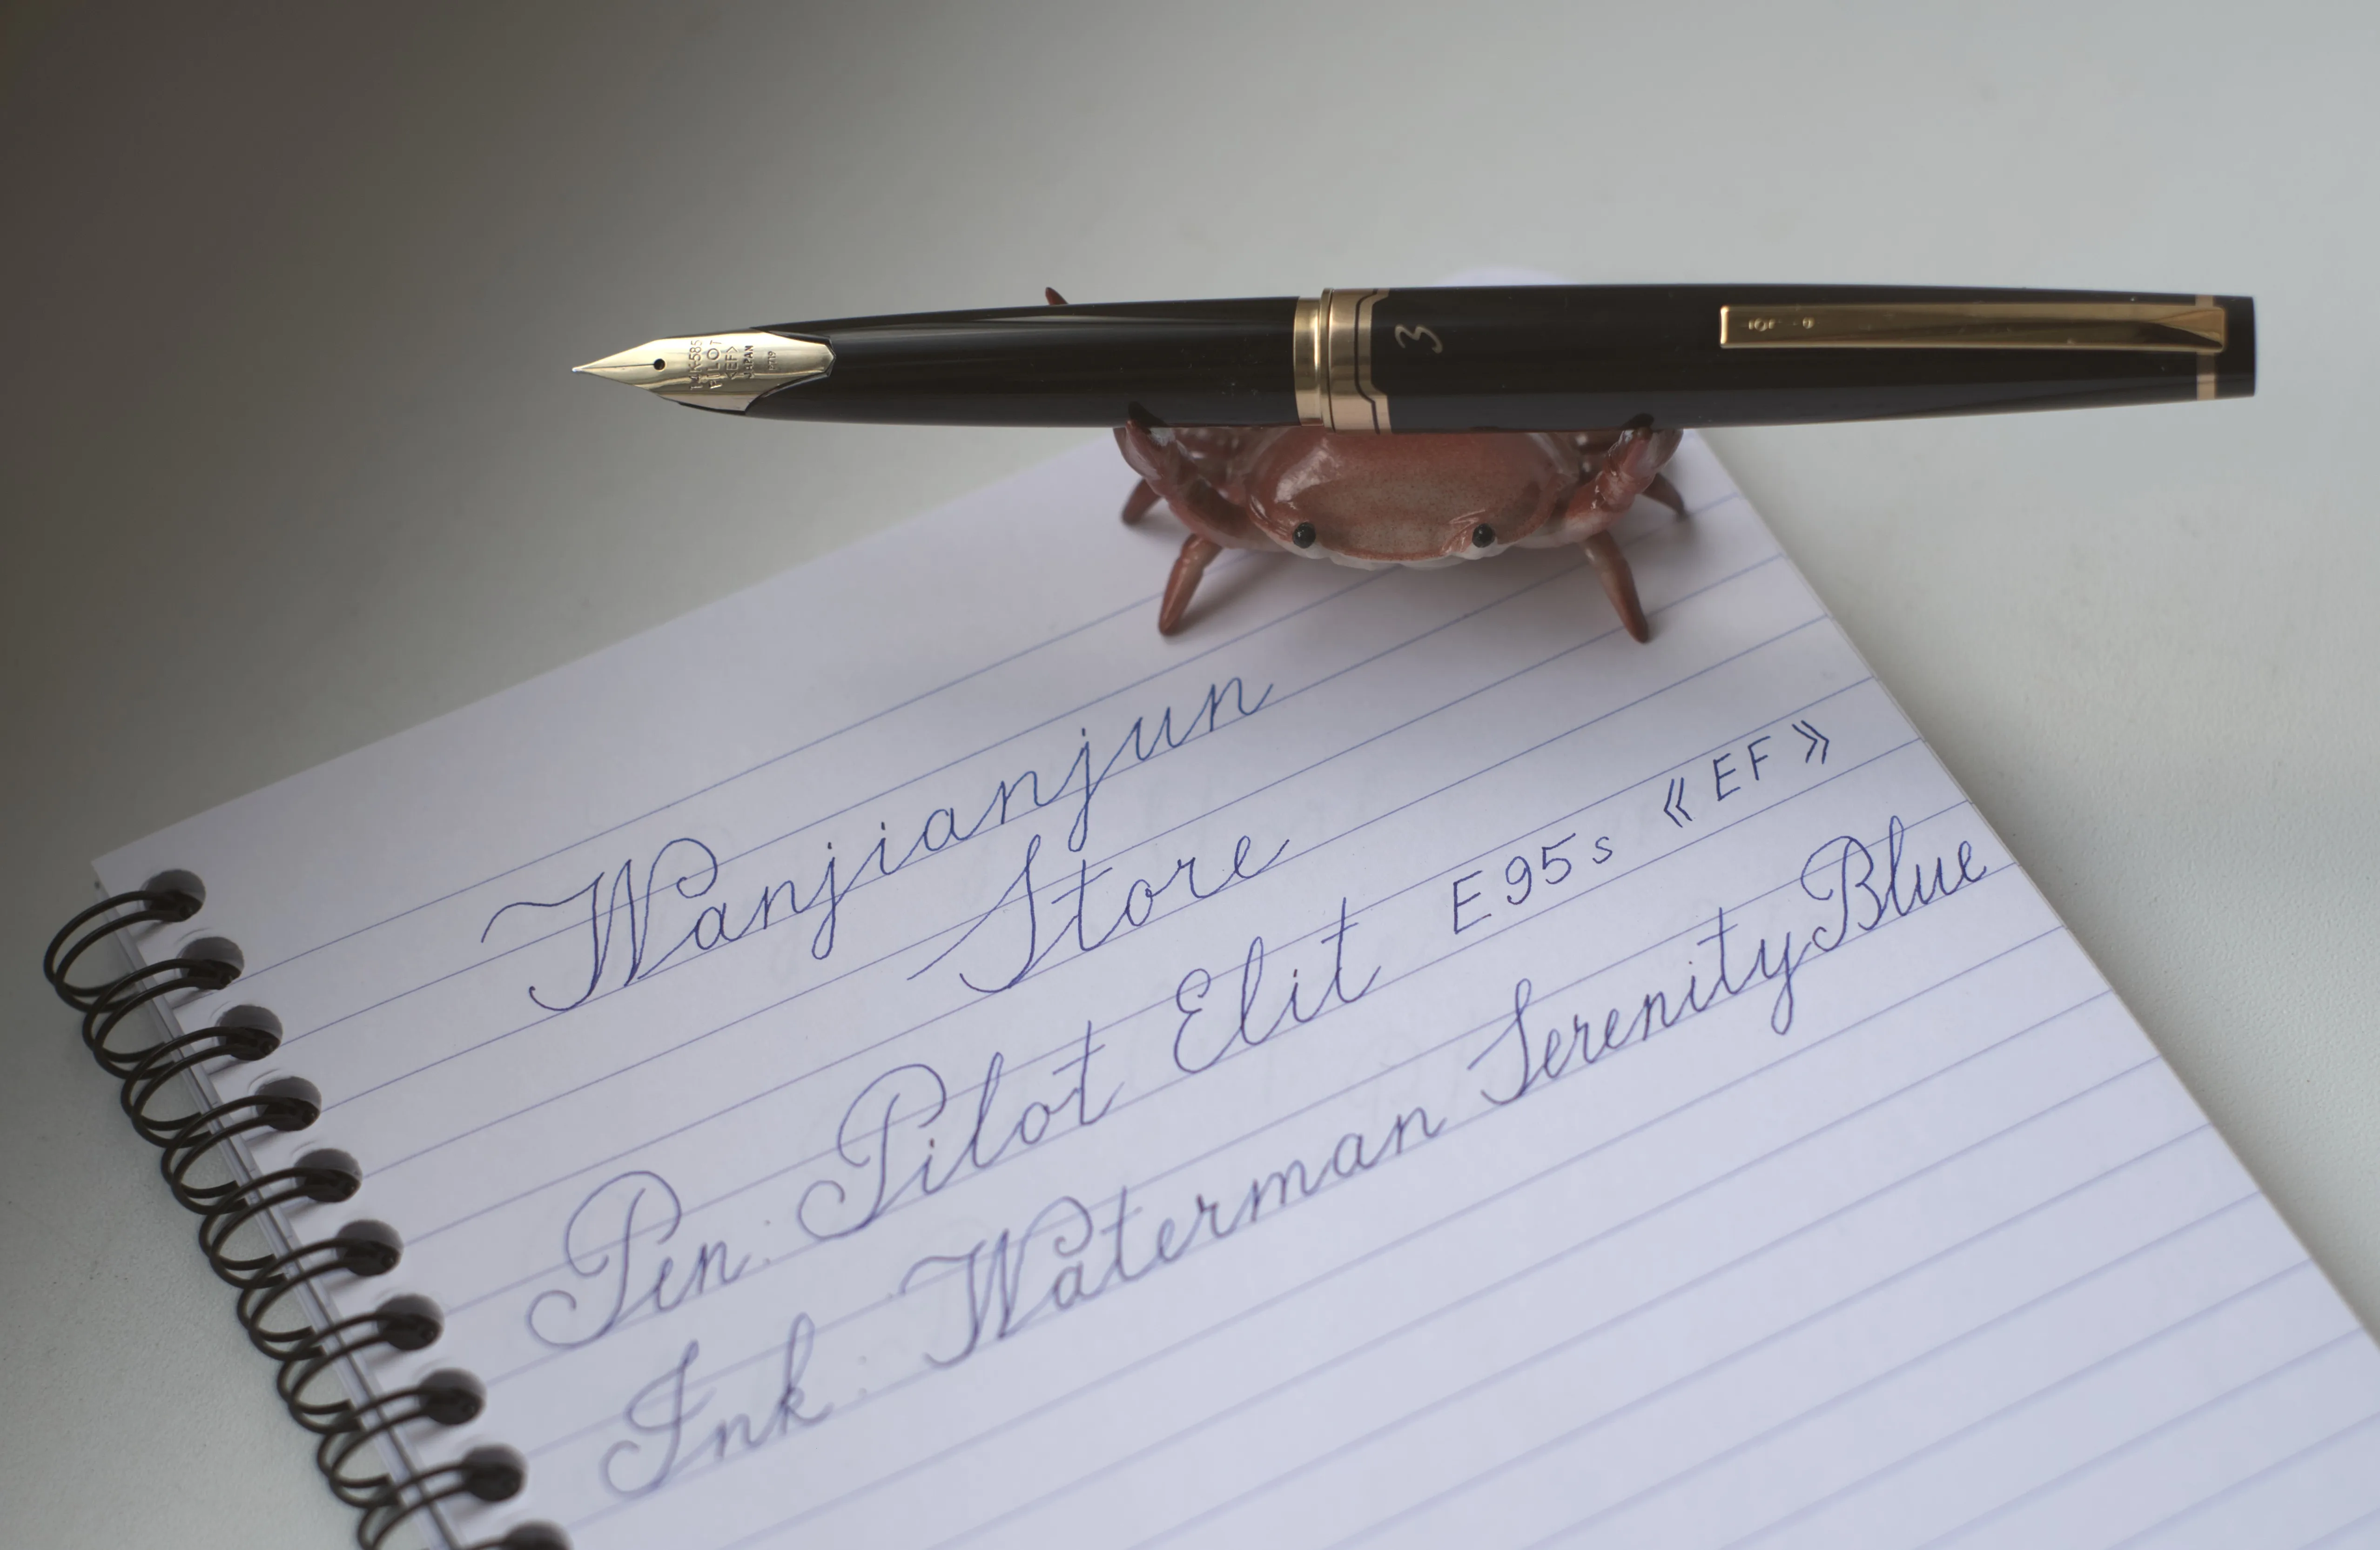 14K-585
PILOT
<EF>
JAPAN
Wanjianjun
Store
Pen: Pilot Elit E95s 《EF》
Ink: Waterman Serenity Blue